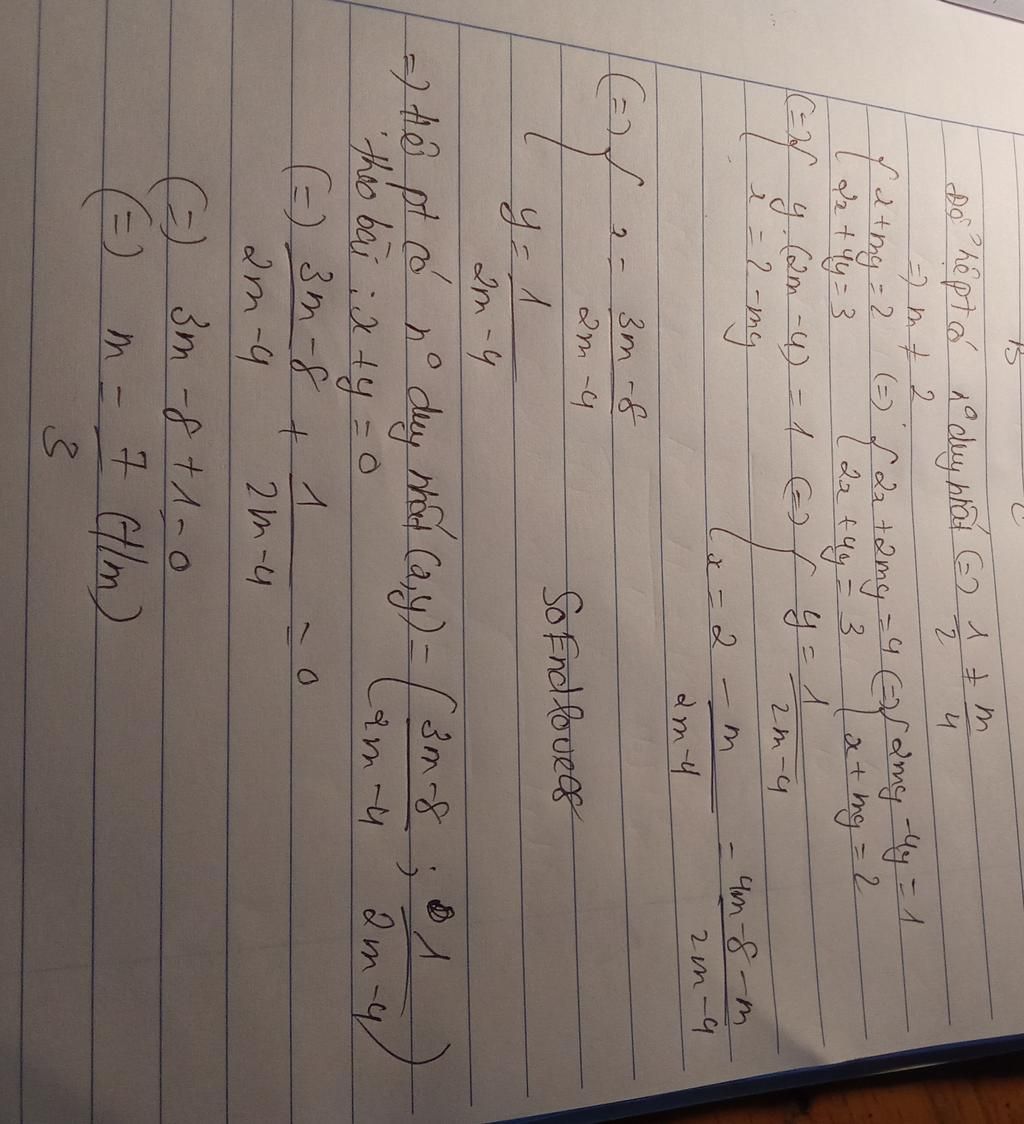 B C
Để hệ pt có nº duy nhất (=) 1/2 ≠ m/4
=) m ≠ 2
{ x + my = 2 (=) { 2x + 2my = 4 (=) { 2my - 4y = 1
{ 2x + 4y = 3 { 2x + 4y = 3 { x + my = 2
(=) { y.(2m - 4) = 1 (=) { y = 1/(2m - 4)
{ x = 2 - my { x = 2 - m/(2m - 4) = (4m - 8 - m)/(2m - 4)
(=) { x = (3m - 8)/(2m - 4)
{ y = 1/(2m - 4)
SoEndlovess
=) Hệ pt có nº duy nhất (x,y) = ((3m - 8)/(2m - 4) ; 1/(2m - 4))
theo bài : x + y = 0
(=) (3m - 8)/(2m - 4) + 1/(2m - 4) = 0
(=) 3m - 8 + 1 = 0
(=) m = 7/3 (t/m)